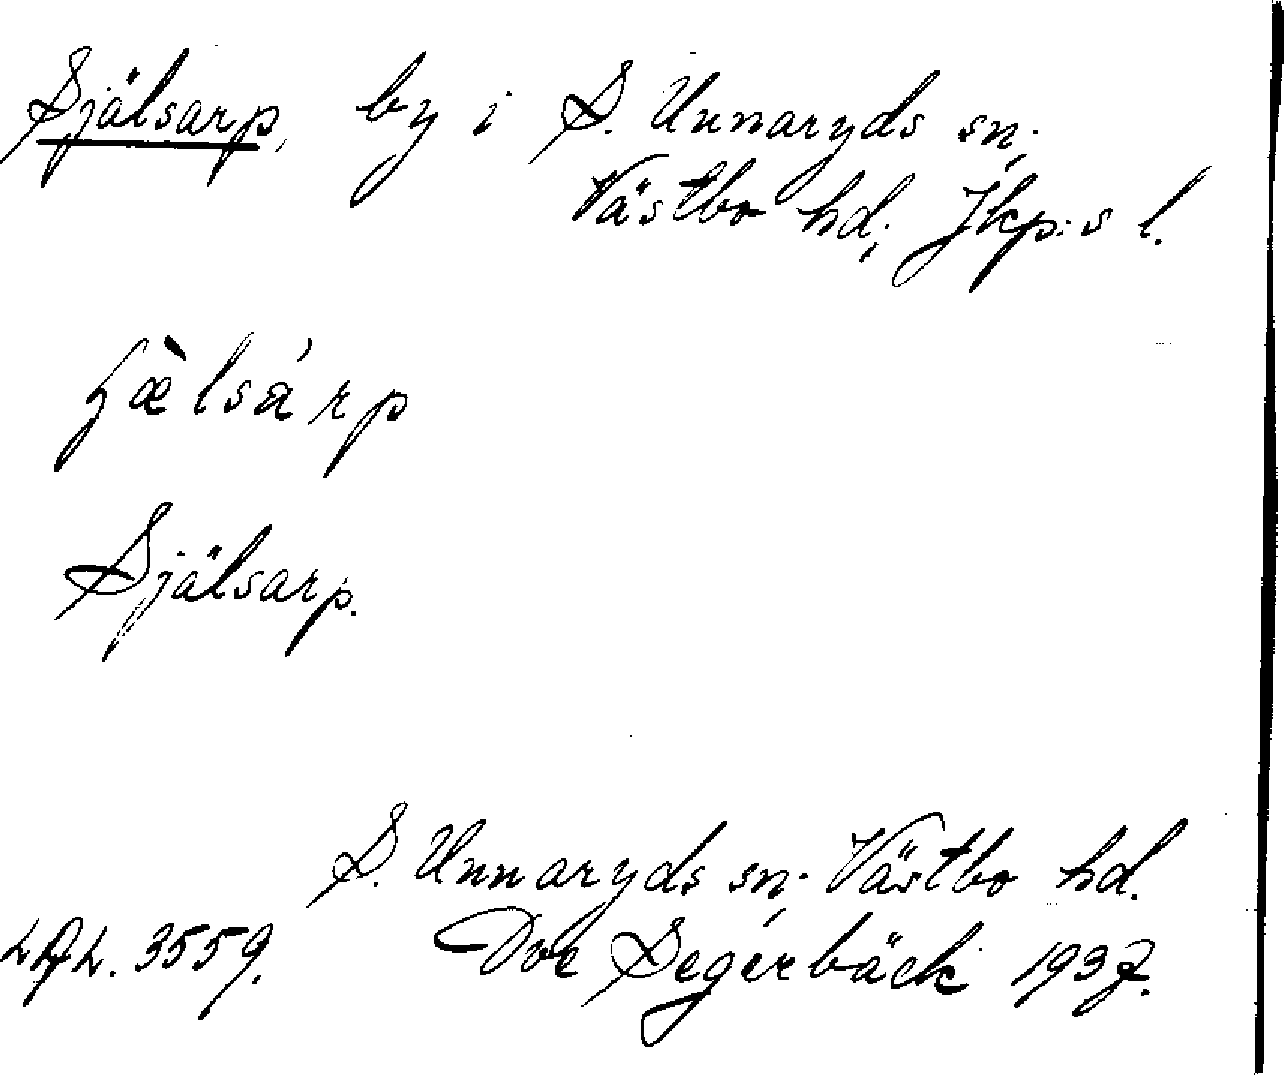 Själsarp, by i S. Unnaryds sn;
Västbo hd; Jkp:s l.
ɧæ̀lsárp
Själsarp.
S. Unnaryds sn; Västbo hd.
3559. Segerbäck 1937.